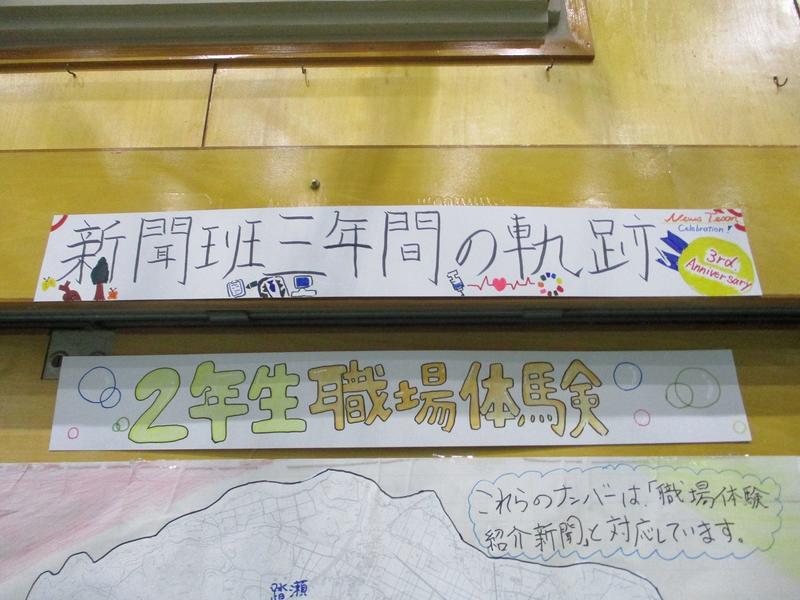 新聞班三年間の軌跡
News Team
Celebration!
3rd.
Anniversary
2年生職場体験
これらのナンバーは、「職場体験
紹介新聞」と対応しています。
踏瀬